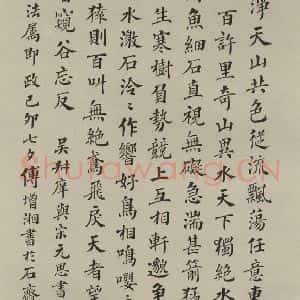 淨天山共色從流飄蕩任意東
百許里奇山異水天下獨絕水
魚細石直視無礙急湍甚箭猛
生寒樹負勢競上互相軒邈爭
水激石泠々作響好鳥相鳴嚶
猿則百叫無絕鳶飛戾天者望
者窺谷忘反 吳叔庠與宋元思書
法屬即政己卯七夕傅增湘書於石齋
Shufawang.CN